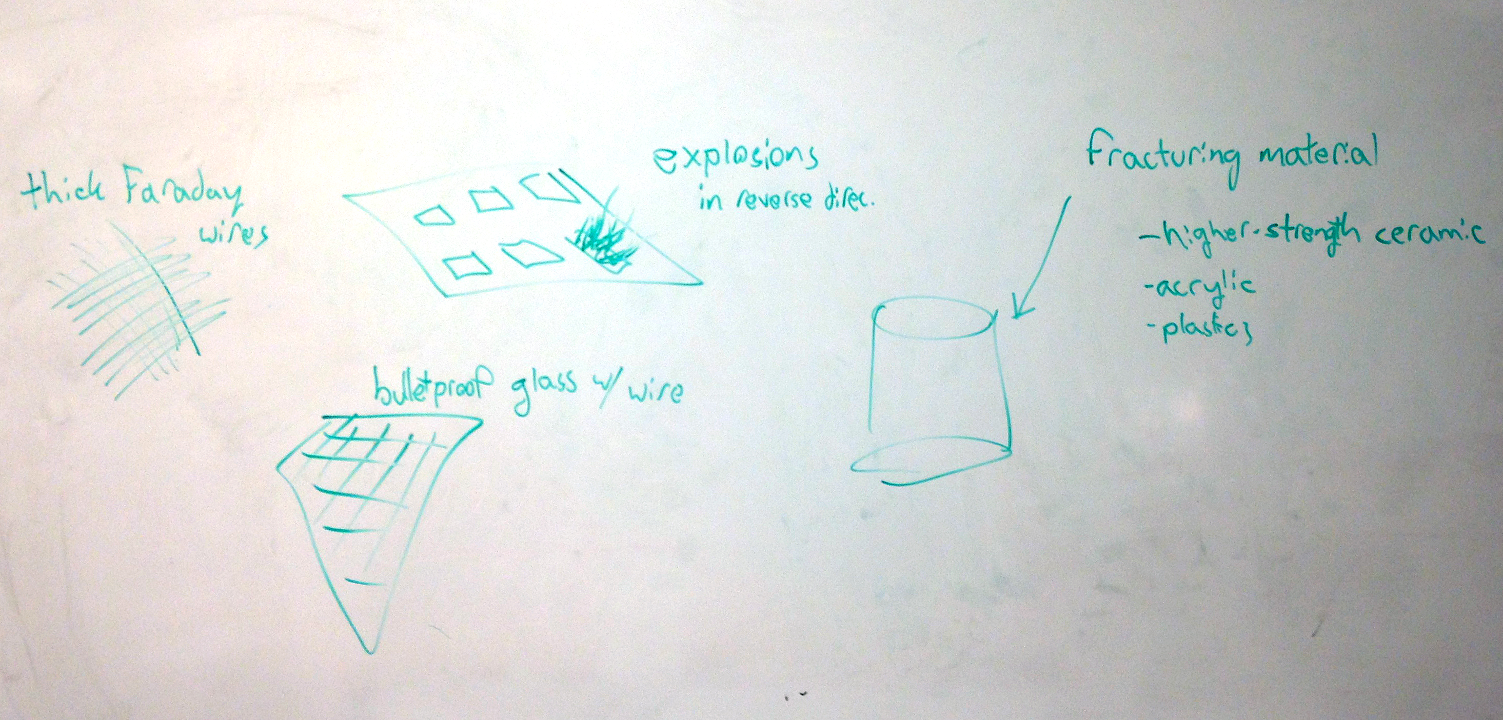 thick Faraday
wires
explosions
in reverse direc.
bulletproof glass w/ wire
fracturing material
-higher-strength ceramic
-acrylic
-plastics